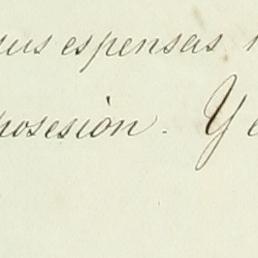 sus espensas
posesion. Y